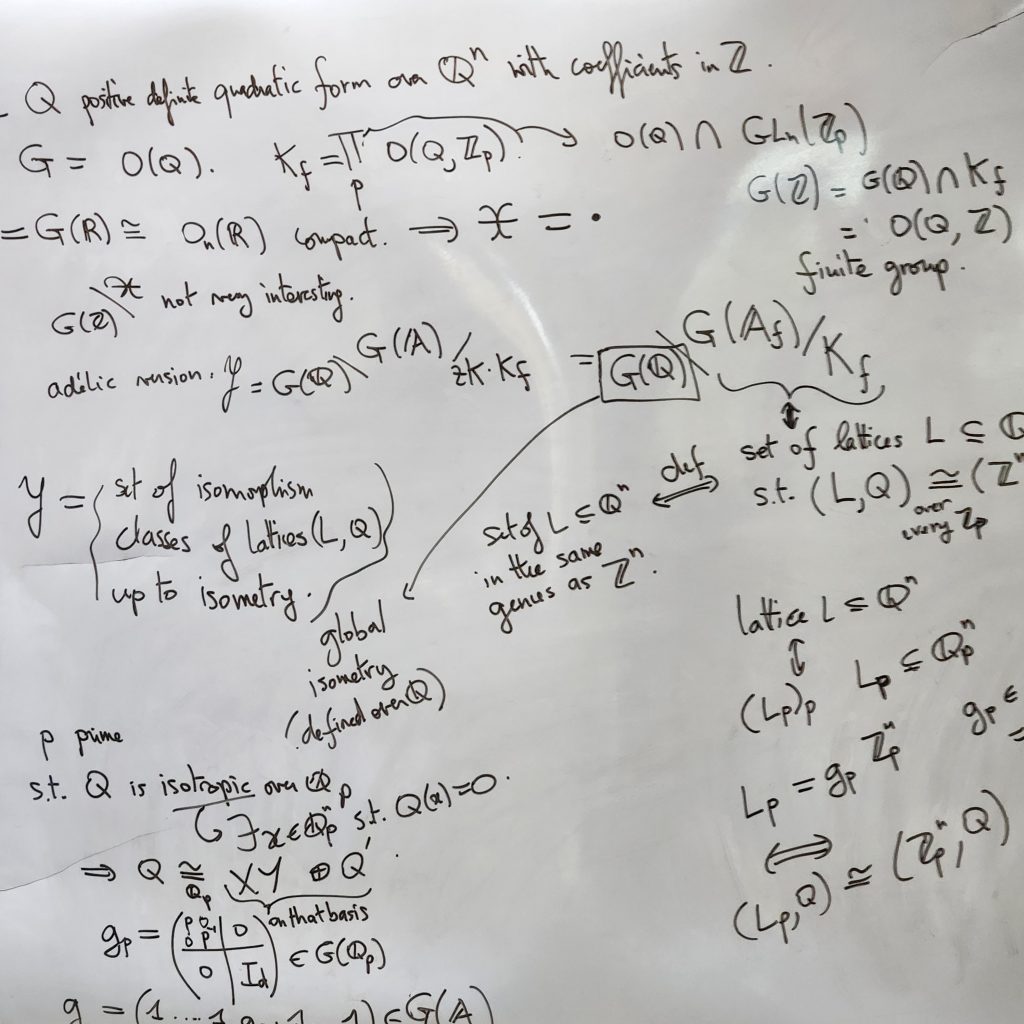 - Q positive definite quadratic form over ℚⁿ with coefficients in ℤ.
G = O(Q). K_f = ∏_p O(Q, ℤ_p). → O(Q) ∩ GL_n(ℤ_p)
G(ℤ) = G(ℚ) ∩ K_f
= O(Q, ℤ)
finite group.
= G(ℝ) ≅ O_n(ℝ) compact. ⟹ 𝔛 = •
G(ℤ)\𝔛 not very interesting.
adélic version. 𝒴 = G(ℚ)\G(𝔸)/ZK·K_f = G(ℚ)\G(𝔸_f)/K_f
↕
set of lattices L ⊆ ℚ
s.t. (L, Q) ≅ (ℤⁿ
over
every ℤ_p
def
⟺
set of L ⊆ ℚⁿ
in the same
genus as ℤⁿ.
𝒴 = { set of isomorphism
classes of lattices (L, Q)
up to isometry. }
global
isometry
(defined over ℚ)
lattice L ⊆ ℚⁿ
↕
(L_p)_p L_p ⊆ ℚ_pⁿ
L_p = g_p ℤ_pⁿ g_p ∈
⟺
(L_p, Q) ≅ (ℤ_pⁿ, Q)
p prime
s.t. Q is isotropic over ℚ_p
↪ ∃ x ∈ ℚ_pⁿ s.t. Q(x) = 0.
⟹ Q ≅_{ℚ_p} XY ⊕ Q′.
on that basis
g_p = (p 0 | 0
0 p⁻¹ |
0 | Id) ∈ G(ℚ_p)
g = (1 .... 1 g_p 1 .. 1) ∈ G(𝔸)